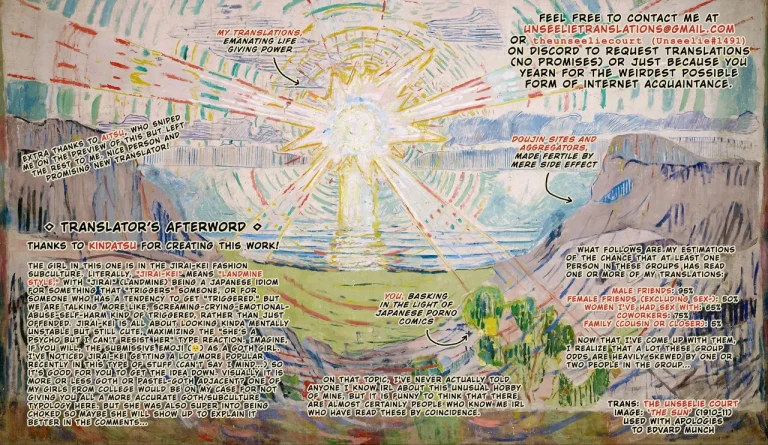 MY TRANSLATIONS,
EMANATING LIFE
GIVING POWER
FEEL FREE TO CONTACT ME AT
UNSEELIETRANSLATIONS@GMAIL.COM
OR theunseeliecourt (Unseelie#1491)
ON DISCORD TO REQUEST TRANSLATIONS
(NO PROMISES) OR JUST BECAUSE YOU
YEARN FOR THE WEIRDEST POSSIBLE
FORM OF INTERNET ACQUAINTANCE.
EXTRA THANKS TO AITSU, WHO SNIPED
ME ON THE PREVIEW OF THIS BUT LEFT
THE REST TO ME. NICE PERSON AND
PROMISING NEW TRANSLATOR!
DOUJIN SITES AND
AGGREGATORS,
MADE FERTILE BY
MERE SIDE EFFECT
◇ TRANSLATOR'S AFTERWORD ◇
THANKS TO KINDATSU FOR CREATING THIS WORK!
THE GIRL IN THIS ONE IS IN THE JIRAI-KEI FASHION
SUBCULTURE. LITERALLY, "JIRAI-KEI" MEANS "LANDMINE
STYLE," WITH "JIRAI" (LANDMINE) BEING A JAPANESE IDIOM
FOR SOMETHING THAT "TRIGGERS" SOMEONE, OR FOR
SOMEONE WHO HAS A TENDENCY TO GET "TRIGGERED." BUT
WE ARE TALKING MORE LIKE, SCREAMING-CRYING-EMOTIONAL-
ABUSE-SELF-HARM KIND OF TRIGGERED, RATHER THAN JUST
OFFENDED. JIRAI-KEI IS ALL ABOUT LOOKING KINDA MENTALLY
UNSTABLE BUT STILL CUTE, MAXIMIZING THE "SHE'S A
PSYCHO BUT I CAN'T RESIST HER" TYPE REACTION. IMAGINE,
IF YOU WILL, THE SUBMISSIVE EMOJI AS A GOTH GIRL.
I'VE NOTICED JIRAI-KEI GETTING A LOT MORE POPULAR
RECENTLY IN THIS TYPE OF STUFF (CAN'T SAY I MIND...) SO
IT'S GOOD FOR YOU TO GET THE IDEA DOWN. VISUALLY IT IS
MORE OR LESS GOTH OR PASTEL-GOTH ADJACENT. ONE OF
MY GIRLS FROM COLLEGE WOULD BE ON MY CASE FOR NOT
GIVING YOU ALL A MORE ACCURATE GOTH SUBCULTURE
TYPOLOGY HERE, BUT SHE WAS ALSO SUPER INTO BEING
CHOKED SO MAYBE SHE WILL SHOW UP TO EXPLAIN IT
BETTER IN THE COMMENTS...
YOU, BASKING
IN THE LIGHT OF
JAPANESE PORNO
COMICS
ON THAT TOPIC, I'VE NEVER ACTUALLY TOLD
ANYONE I KNOW IRL ABOUT THIS UNUSUAL HOBBY
OF MINE, BUT IT IS FUNNY TO THINK THAT THERE
ARE ALMOST CERTAINLY PEOPLE WHO KNOW ME IRL
WHO HAVE READ THESE BY COINCIDENCE.
WHAT FOLLOWS ARE MY ESTIMATIONS
OF THE CHANCE THAT AT LEAST ONE
PERSON IN THESE GROUPS HAS READ
ONE OR MORE OF MY TRANSLATIONS:
MALE FRIENDS: 95%
FEMALE FRIENDS (EXCLUDING SEX-): 50%
WOMEN I'VE HAD SEX WITH: 65%
COWORKERS: 75%
FAMILY (COUSIN OR CLOSER): 5%
NOW THAT I'VE COME UP WITH THEM,
I REALIZE THAT A LOT THESE GROUP
ODDS ARE HEAVILY SKEWED BY ONE OR
TWO PEOPLE IN THE GROUP...
TRANS: THE UNSEELIE COURT
IMAGE: "THE SUN" (1910-11)
USED WITH APOLOGIES
TO EDVARD MUNCH